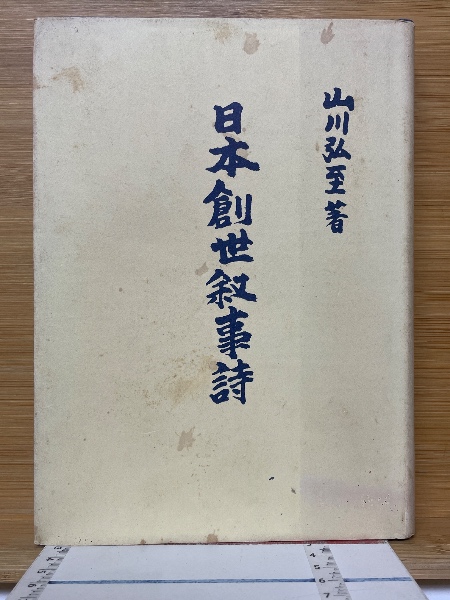 山川弘至著
日本創世叙事詩